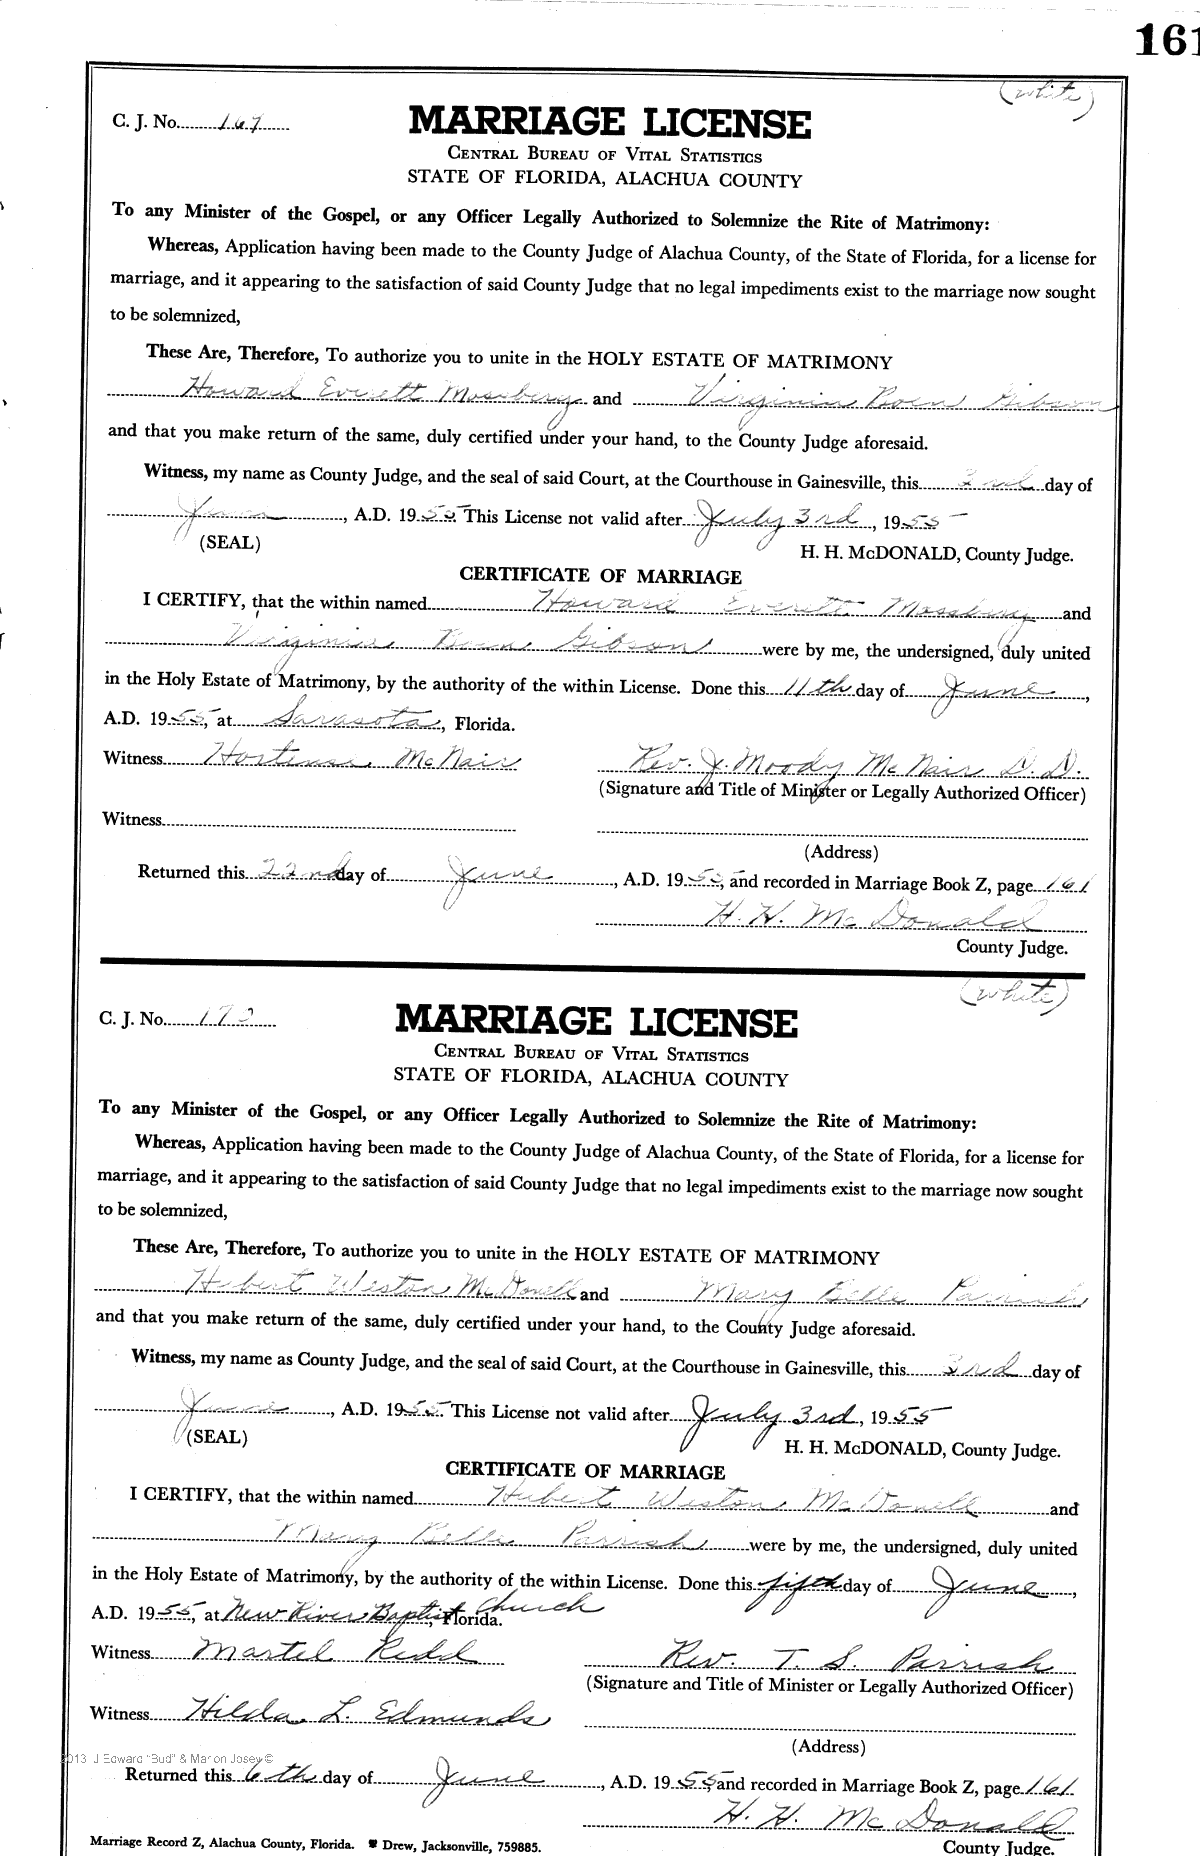 161
(white)
C. J. No. 167 MARRIAGE LICENSE
CENTRAL BUREAU OF VITAL STATISTICS
STATE OF FLORIDA, ALACHUA COUNTY
To any Minister of the Gospel, or any Officer Legally Authorized to Solemnize the Rite of Matrimony:
Whereas, Application having been made to the County Judge of Alachua County, of the State of Florida, for a license for
marriage, and it appearing to the satisfaction of said County Judge that no legal impediments exist to the marriage now sought
to be solemnized,
These Are, Therefore, To authorize you to unite in the HOLY ESTATE OF MATRIMONY
Howard Everett Mossberg and Virginia Gibson
and that you make return of the same, duly certified under your hand, to the County Judge aforesaid.
Witness, my name as County Judge, and the seal of said Court, at the Courthouse in Gainesville, this 3rd day of
June, A.D. 1955. This License not valid after July 3rd, 1955
(SEAL) H. H. McDONALD, County Judge.
CERTIFICATE OF MARRIAGE
I CERTIFY, that the within named Howard Everett Mossberg and
Virginia Gibson were by me, the undersigned, duly united
in the Holy Estate of Matrimony, by the authority of the within License. Done this 11th day of June,
A.D. 1955, at Sarasota, Florida.
Witness Hortense McNair Rev. J. Moody McNair D.D.
(Signature and Title of Minister or Legally Authorized Officer)
Witness
(Address)
Returned this 22nd day of June, A.D. 1955, and recorded in Marriage Book Z, page 161
H. H. McDonald
County Judge.
(white)
C. J. No. MARRIAGE LICENSE
CENTRAL BUREAU OF VITAL STATISTICS
STATE OF FLORIDA, ALACHUA COUNTY
To any Minister of the Gospel, or any Officer Legally Authorized to Solemnize the Rite of Matrimony:
Whereas, Application having been made to the County Judge of Alachua County, of the State of Florida, for a license for
marriage, and it appearing to the satisfaction of said County Judge that no legal impediments exist to the marriage now sought
to be solemnized,
These Are, Therefore, To authorize you to unite in the HOLY ESTATE OF MATRIMONY
Hubert Weston McDonell and Mary Belle Parrish
and that you make return of the same, duly certified under your hand, to the County Judge aforesaid.
Witness, my name as County Judge, and the seal of said Court, at the Courthouse in Gainesville, this 3rd day of
June, A.D. 1955. This License not valid after July 3rd, 1955
(SEAL) H. H. McDONALD, County Judge.
CERTIFICATE OF MARRIAGE
I CERTIFY, that the within named Hubert Weston McDonell and
Mary Belle Parrish were by me, the undersigned, duly united
in the Holy Estate of Matrimony, by the authority of the within License. Done this fifth day of June,
A.D. 1955, at New River Baptist Church, Florida.
Witness Martel Redd Rev. T. S. Parrish
(Signature and Title of Minister or Legally Authorized Officer)
Witness Hilda L. Edmunds
(Address)
2013 J Edward "Bud" & Marion Josey ©
Returned this 6th day of June, A.D. 1955, and recorded in Marriage Book Z, page 161
H. H. McDonald
Marriage Record Z, Alachua County, Florida. Drew, Jacksonville, 759885. County Judge.